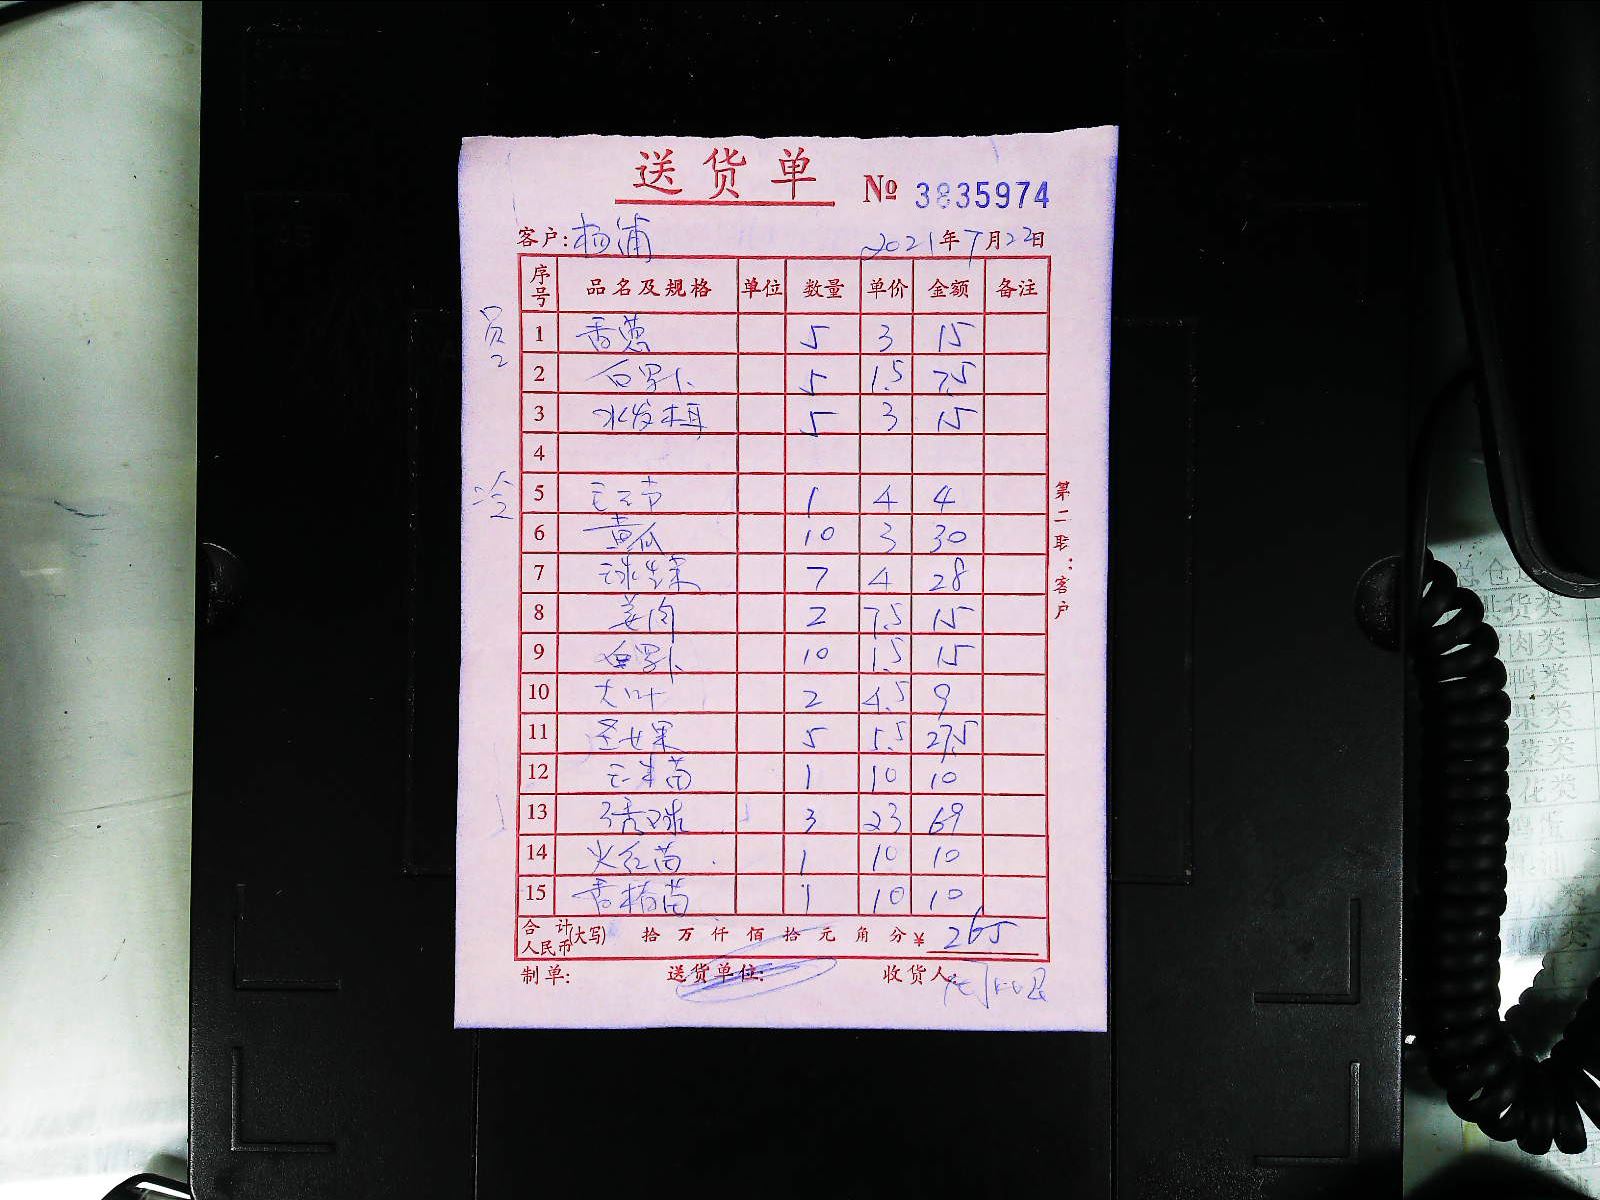 送货单
№ 3835974
客户: 杨浦 2021年7月22日
序号 品名及规格 单位 数量 单价 金额 备注
员
1 香葱 5 3 15
2 白罗卜 5 1.5 7.5
3 水发木耳 5 3 15
4
冷
5 1 4 4
6 黄瓜 10 3 30
7 球生菜 7 4 28
8 姜肉 2 7.5 15
9 白罗卜 10 1.5 15
10 大叶 2 4.5 9
11 圣女果 5 5.5 27.5
12 玉米苗 1 10 10
13 绣球 3 23 69
14 火红苗 1 10 10
15 香椿苗 1 10 10
合计人民币(大写) 拾 万 仟 佰 拾 元 角 分 ¥ 265
制单: 送货单位: 收货人:
第二联:客户
货类
肉类
鸭类
果类
菜类
花类